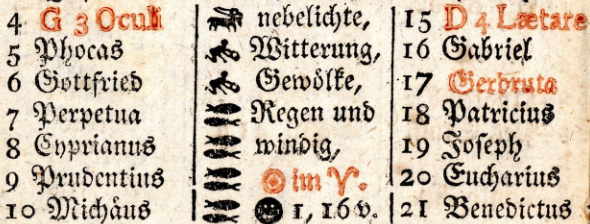 4 G 3 Oculi
5 Phocas
6 Gottfried
7 Perpetua
8 Cyprianus
9 Prudentius
10 Michäus
nebelichte,
Witterung,
Gewölke,
Regen und
windig,
☉ im ♈.
1, 16 v.
15 D 4 Lætare
16 Gabriel
17 Gerdruta
18 Patricius
19 Joseph
20 Eucharius
21 Benedictus